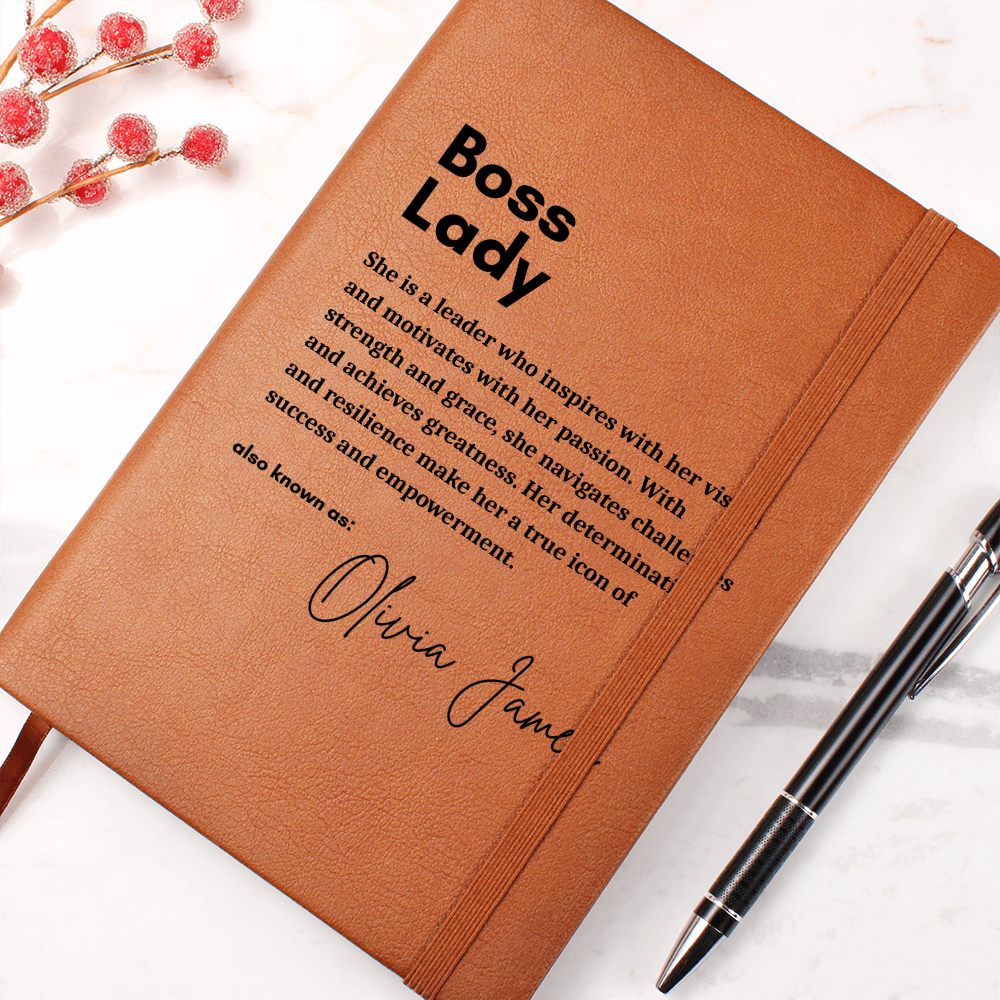 Boss
Lady
She is a leader who inspires with her vis
and motivates with her passion. With
strength and grace, she navigates challe es
and achieves greatness. Her determinati
and resilience make her a true icon of
success and empowerment.
also known as:
Olivia Jame